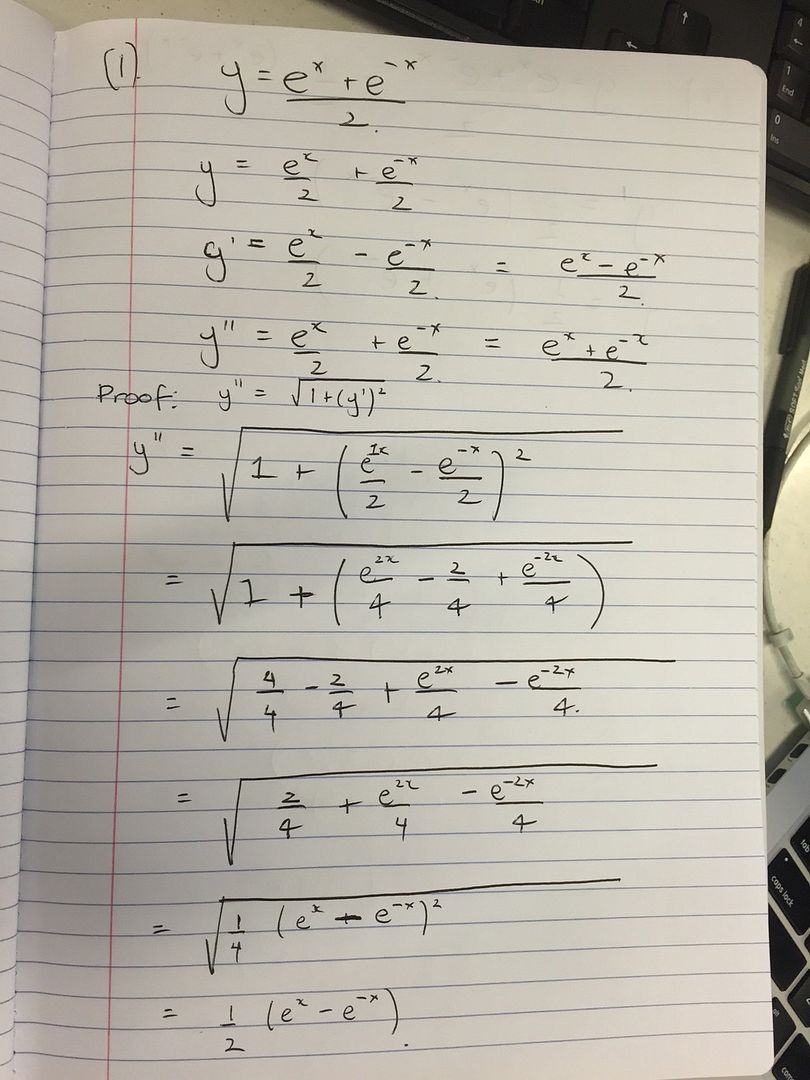 (1). y = (e^x + e^-x)/2.
y = e^x/2 + e^-x/2
y' = e^x/2 - e^-x/2. = (e^x - e^-x)/2.
y" = e^x/2 + e^-x/2. = (e^x + e^-x)/2.
Proof: y" = √(1+(y')²)
y" = √(1 + (e^1x/2 - e^-x/2)²)
= √(1 + (e^2x/4 - 2/4 + e^-2x/4))
= √(4/4 - 2/4 + e^2x/4 - e^-2x/4.)
= √(2/4 + e^2x/4 - e^-2x/4)
= √(1/4 (e^x - e^-x)²)
= 1/2 (e^x - e^-x).